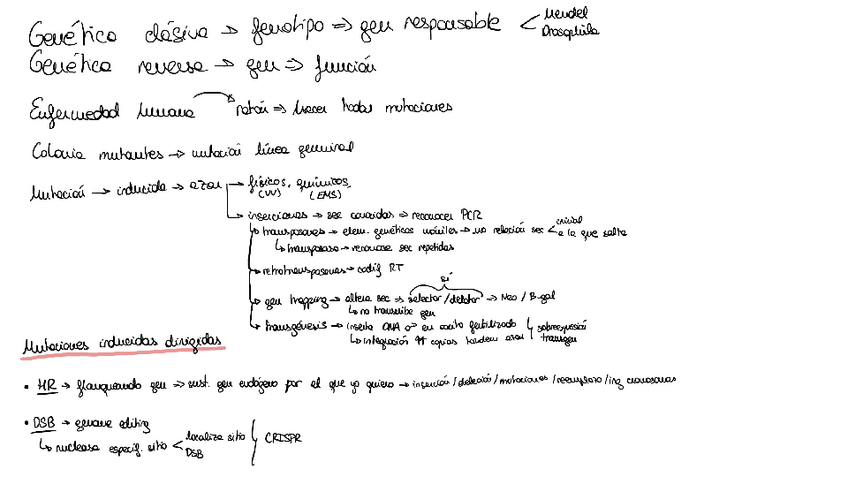 Genética clásica → fenotipo ⇒ gen responsable < Mendel
Drosophila
Genética reversa → gen ⇒ función
Enfermedad humana → ratón ⇒ hacer todas mutaciones
Colonia mutantes → mutación línea germinal
Mutación → inducida → azar → físicos, químicos,
(UV) (EMS)
inserciones → sec conocidas → reconocer PCR
transposones → elem. genéticos móviles → no relación sec < inicial
a la que salta
↳ transposasa → reconoce sec repetidas
retrotransposones → codif RT
sí
gen trapping → altera sec ⇒ selector/delator → Neo / B-gal
↳ no transcribe gen
transgénesis → inserta DNA en ovocito fertilizado
↳ integración copias tandem azar
sobreexpresión
transgen
Mutaciones inducidas dirigidas
• HR → flanqueando gen ⇒ sust. gen endógeno por el que yo quiero → inserción/delección/mutaciones/reemplazo/ing cromosomas
• DSB → genome editing
↳ nucleasa específ. sitio < localiza sitio
DSB
CRISPR